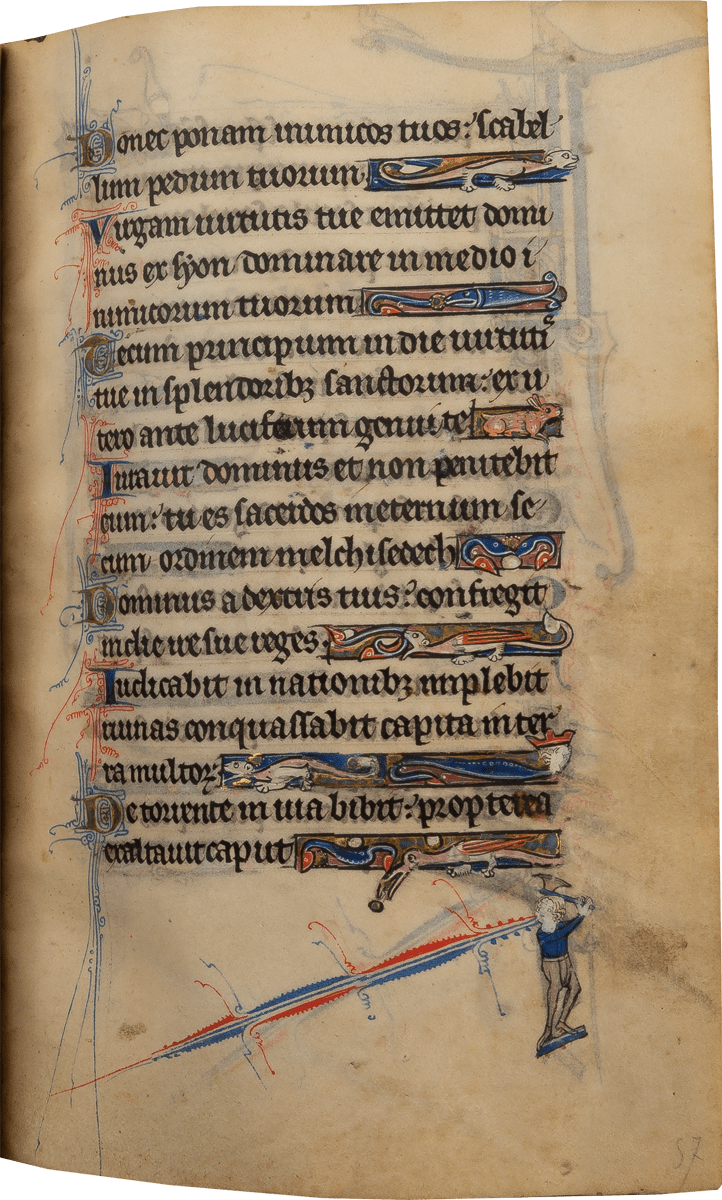 Donec ponam inimicos tuos: scabel
lum pedum tuorum.
Virgam uirtutis tue emittet domi
nus ex syon dominare in medio i
nimicorum tuorum
Tecum principium in die uirtutis
tue in splendoribꝫ sanctorum: ex u
tero ante luciferum genui te
Iurauit dominus et non penitebit
eum: tu es sacerdos ineternum se
cum ordinem melchisedech
Dominus a dextris tuis: confregit
in die ire sue reges.
Iudicabit in nationibꝫ implebit
ruinas conquassabit capita in ter
ra multoꝝ
De torrente in uia bibit: propterea
exaltauit caput
57